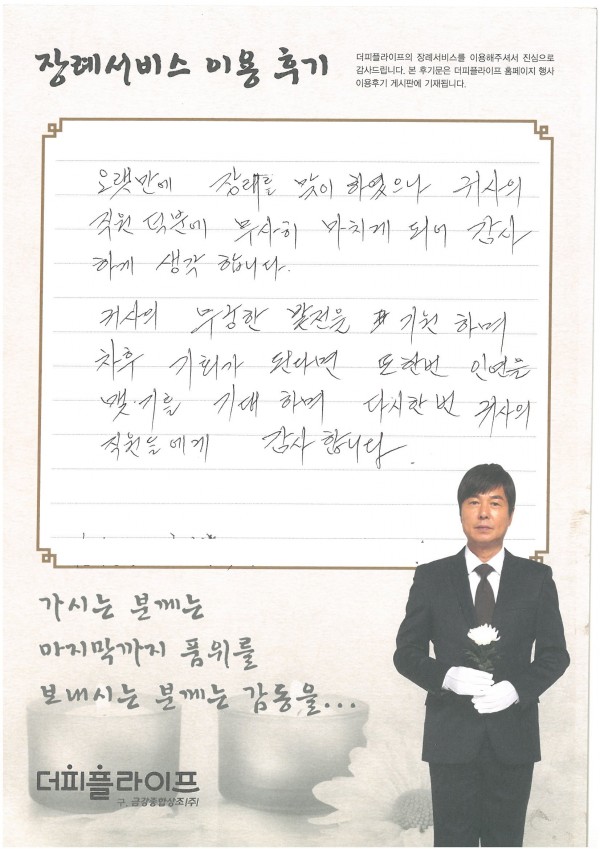 장례서비스 이용 후기
더피플라이프의 장례서비스를 이용해주셔서 진심으로
감사드립니다. 본 후기문은 더피플라이프 홈페이지 행사
이용후기 게시판에 기재됩니다.
오랫만에 장례를 맞이 하였으나 귀사의
직원 덕분에 무사히 마치게 되어 감사
하게 생각 합니다.
귀사의 무궁한 발전을 기원 하며
차후 기회가 된다면 또한번 인연을
맺기를 기대 하며 다시한번 귀사의
직원들에게 감사 합니다.
가시는 분께는
마지막까지 품위를
보내시는 분께는 감동을...
더피플라이프
구. 금강종합상조(주)